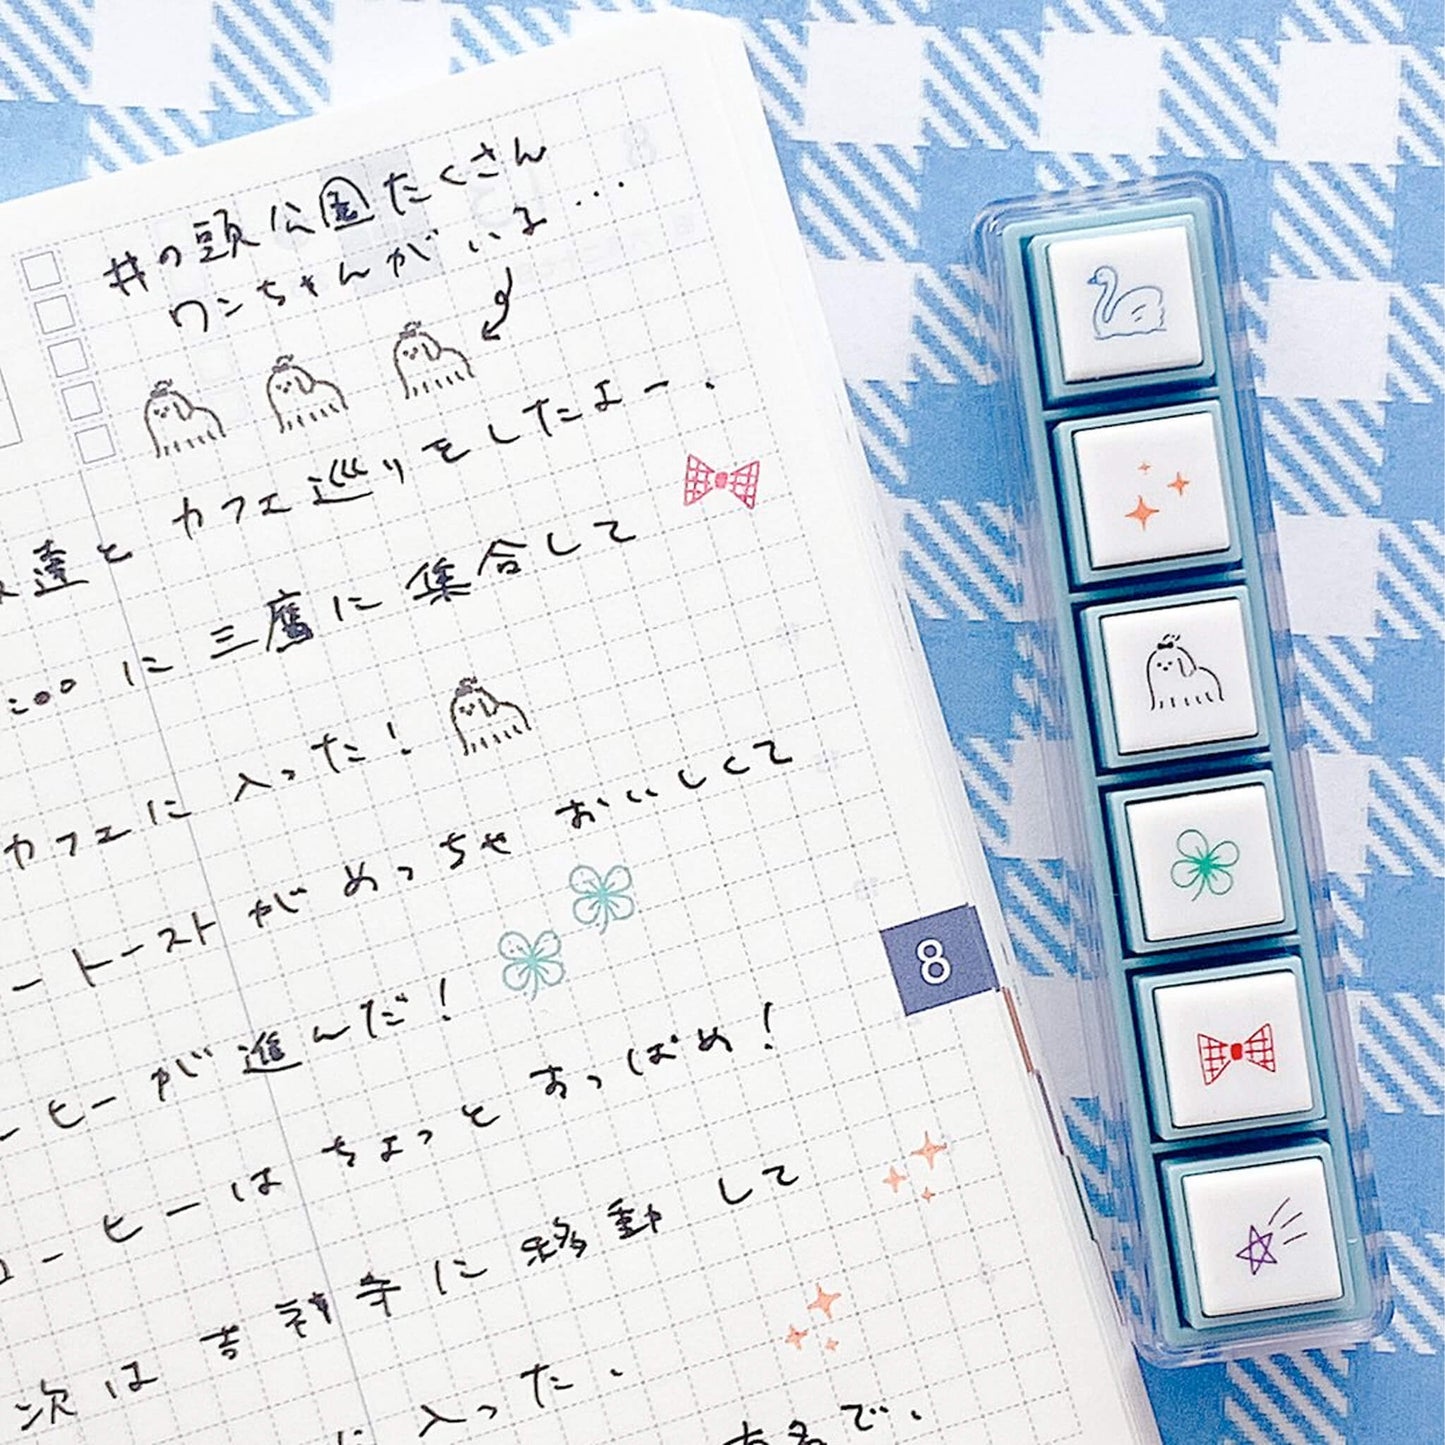 井の頭公園たくさん
ワンちゃんがいる...
達とカフェ巡りをしたよー.
:00に三鷹に集合して
カフェに入った!
ートーストがめっちゃおいしくて
ーヒーが進んだ!
8
ーヒーはちょっとすっぱめ!
次は吉祥寺に移動して
に入った.
で.